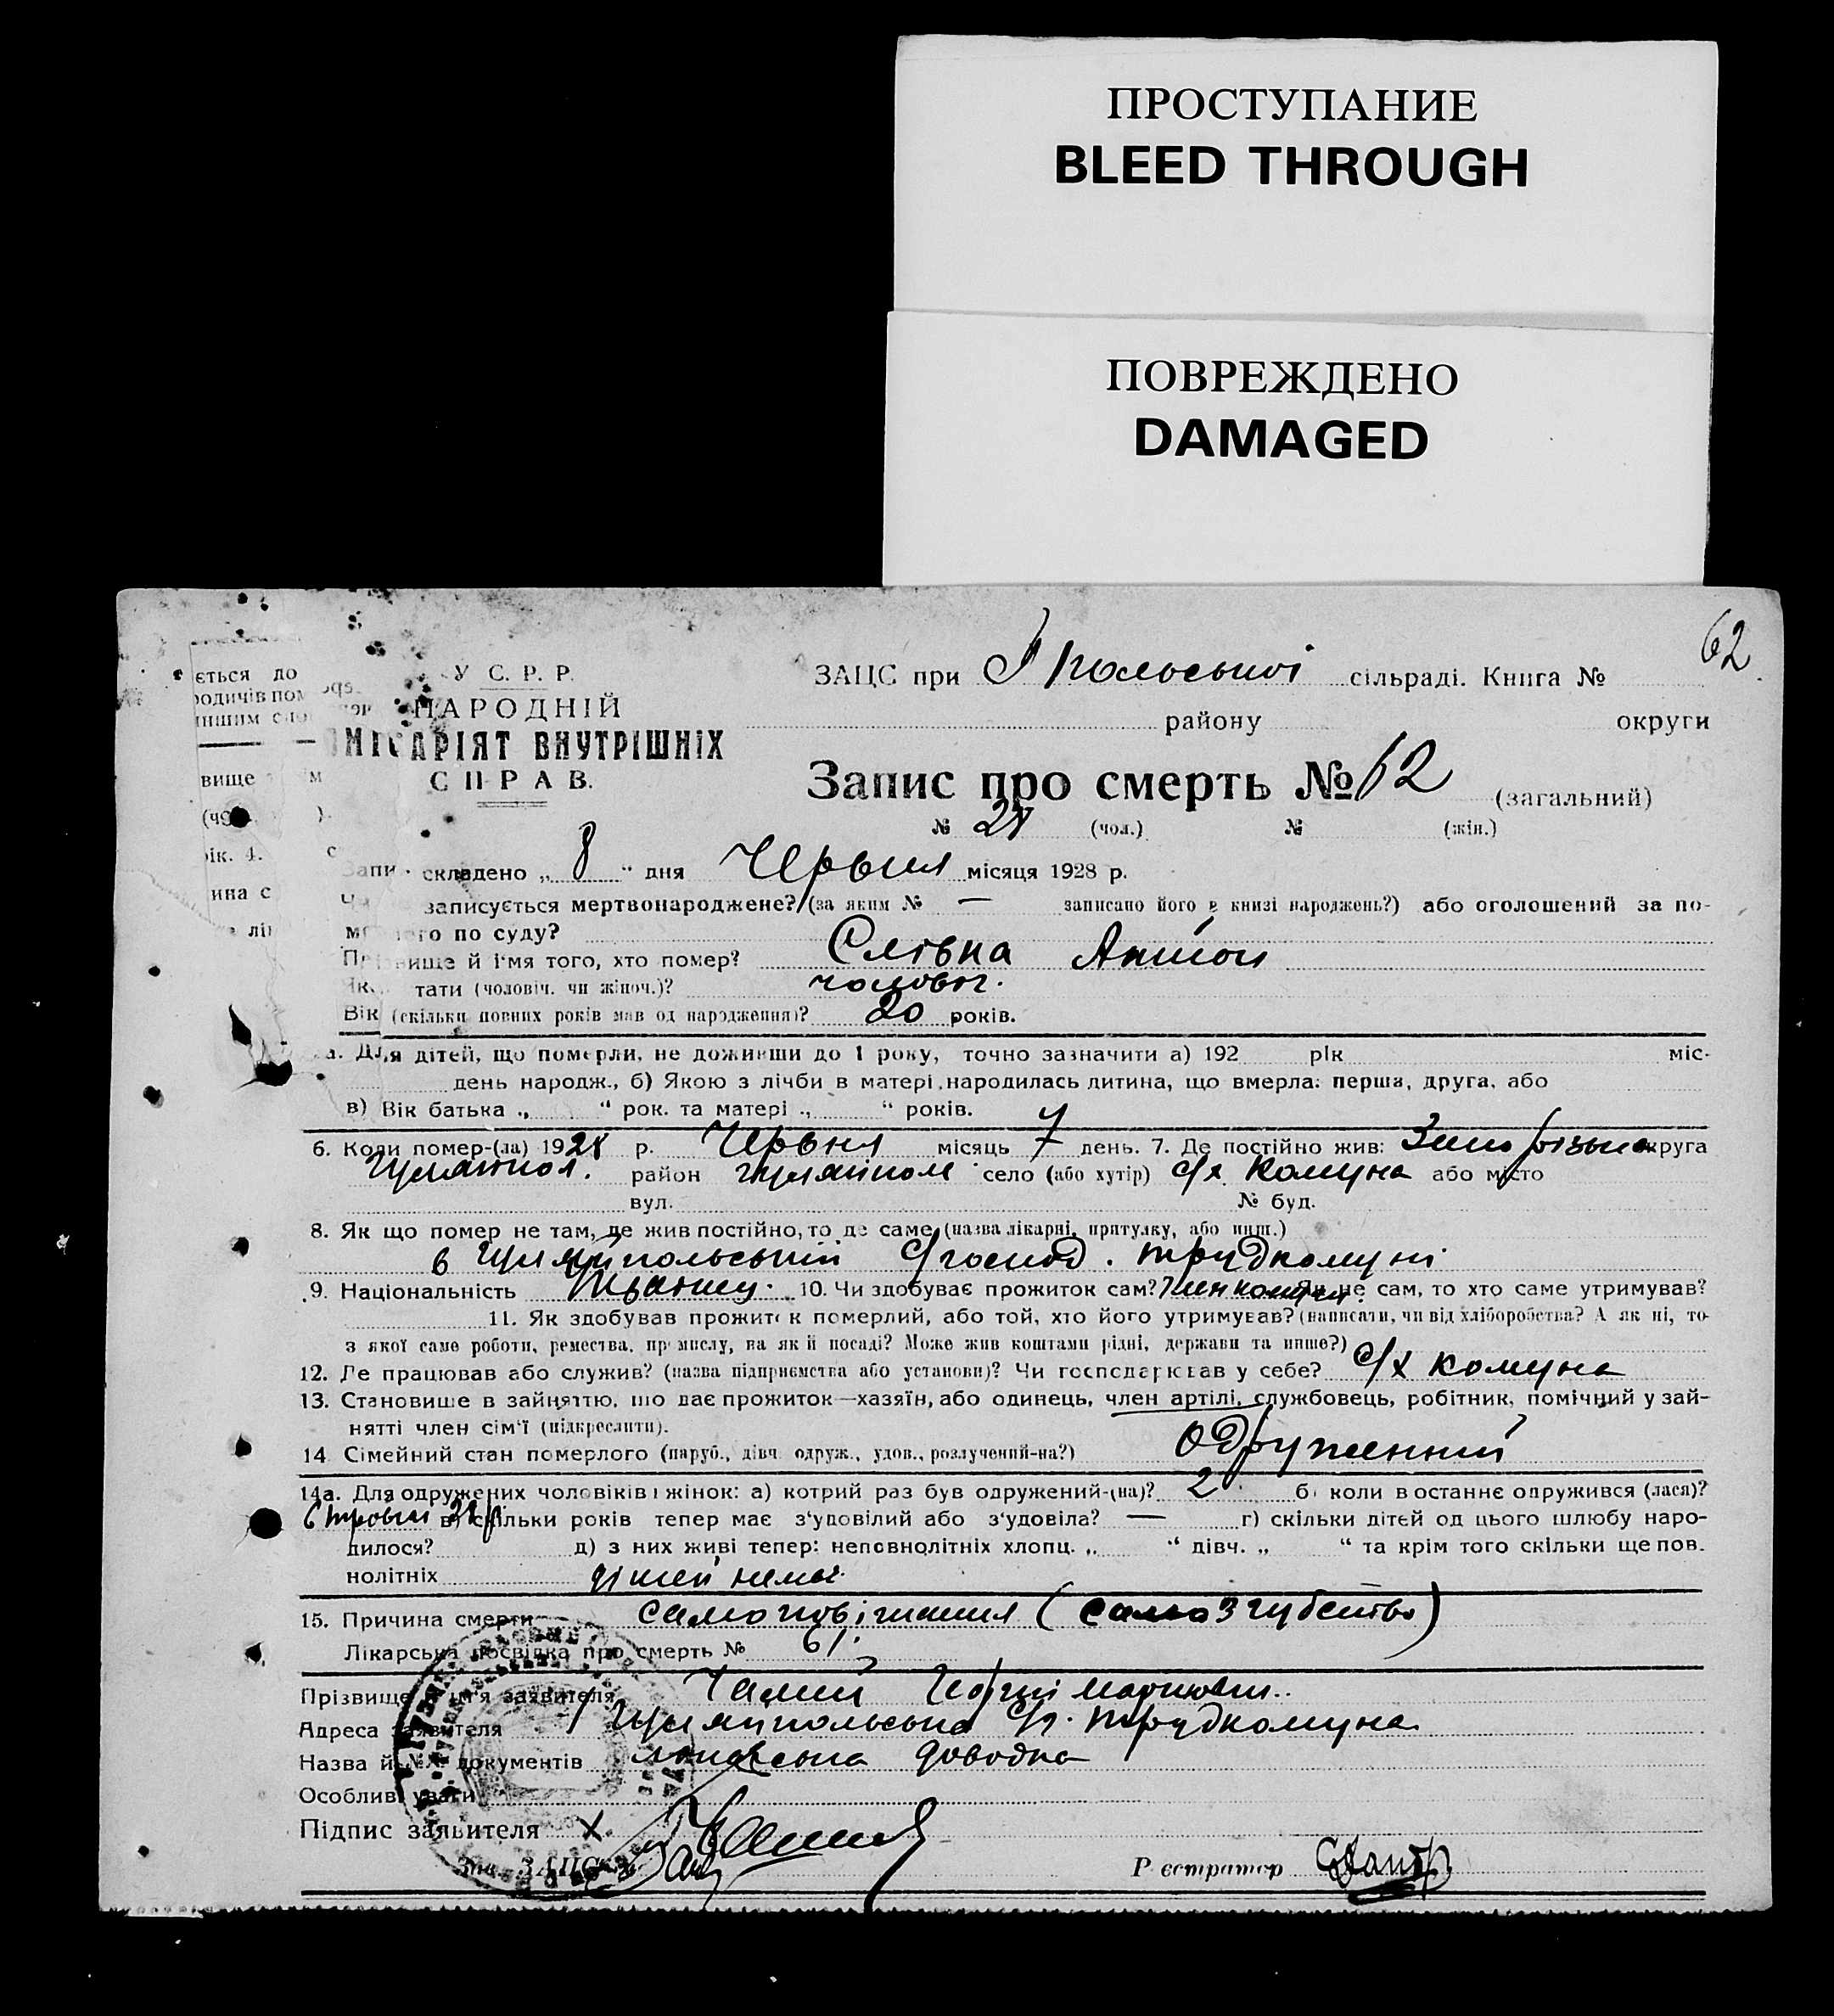 ПРОСТУПАНИЕ
BLEED THROUGH
ПОВРЕЖДЕНО
DAMAGED
62
ється до
родичів пом
иншим сло
вище
(чо
рік. 4.
ина с
У С. Р. Р.
НАРОДНІЙ
ОМІСАРІЯТ ВНУТРІШНІХ
СПРАВ.
ЗАЦС при сільраді. Книга №
району округи
Запис про смерть № 62 (загальний)
№ (чол.) № (жін.)
Запи складено „ 8 “ дня Червня місяця 1928 р.
записується мертвонароджене? (за яким № — записано його в книзі народжень?) або оголошений за по-
го по суду?
Прізвище й ім'я того, хто помер? Слівка Антон
тати (чоловіч. чи жіноч.)? чоловіч.
Вік (скільки повних років мав од народження)? 20 років.
а. Для дітей, що померли, не доживши до 1 року, точно зазначити а) 192 рік міс-
день народж., б) Якою з лічби в матері народилась дитина, що вмерла: перша, друга, або
в) Вік батька „ “ рок. та матері „ “ років.
6. Коли помер-(ла) 1928 р. Червня місяць 7 день. 7. Де постійно жив: округа
Гуляйпол. район Гуляйполе село (або хутір) с/х Комуна або місто
вул. № буд.
8. Як що помер не там, де жив постійно, то де саме (назва лікарні, притулку, або инш.)
в Гуляйпольській С/господ. трудкомуні
9. Національність 10. Чи здобуває прожиток сам? Як не сам, то хто саме утримував?
11. Як здобував прожиток померлий, або той, хто його утримував? (написати, чи від хліборобства? А як ні, то
з якої саме роботи, ремества, промислу, на якій посаді? Може жив коштами рідні, держави та инше?)
12. Де працював або служив? (назва підприємства або установи)? Чи господарював у себе? с/х комуна
13. Становище в зайняттю, що дає прожиток—хазяїн, або одинець, член артілі, службовець, робітник, помічний у зай-
нятті член сім'ї (підкреслити).
14 Сімейний стан померлого (паруб., дівч. одруж., удов., розлучений-на?) одружений
14а. Для одружених чоловіків і жінок: а) котрий раз був одружений-(на)? 2 б) коли востаннє одружився (лася)?
в) скільки років тепер має з'удовілий або з'удовіла? — г) скільки дітей од цього шлюбу наро-
дилося? д) з них живі тепер: неповнолітніх хлопц. „ “ дівч. „ “ та крім того скільки ще пов.
нолітніх дітей немає
15. Причина смерти самоповішання (самозгубство)
Лікарська посвідка про смерть № 61.
Прізвище й ім'я заявителя
Адреса заявителя Гуляйпольська С/г. трудкомуна
Назва й №№ документів доводка
Особливі уваги
Підпис заявителя х
Зав. ЗАЦС'ом Реєстратор